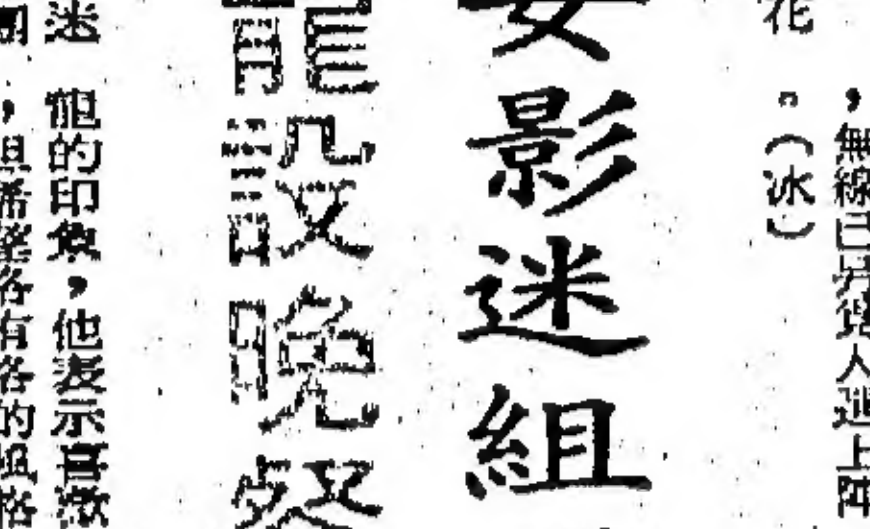 ，無線已另覓人選上陣
花。（冰）
影迷組
龍設晚
迷龍的印象，他表示喜歡
，但希望各有各的風格